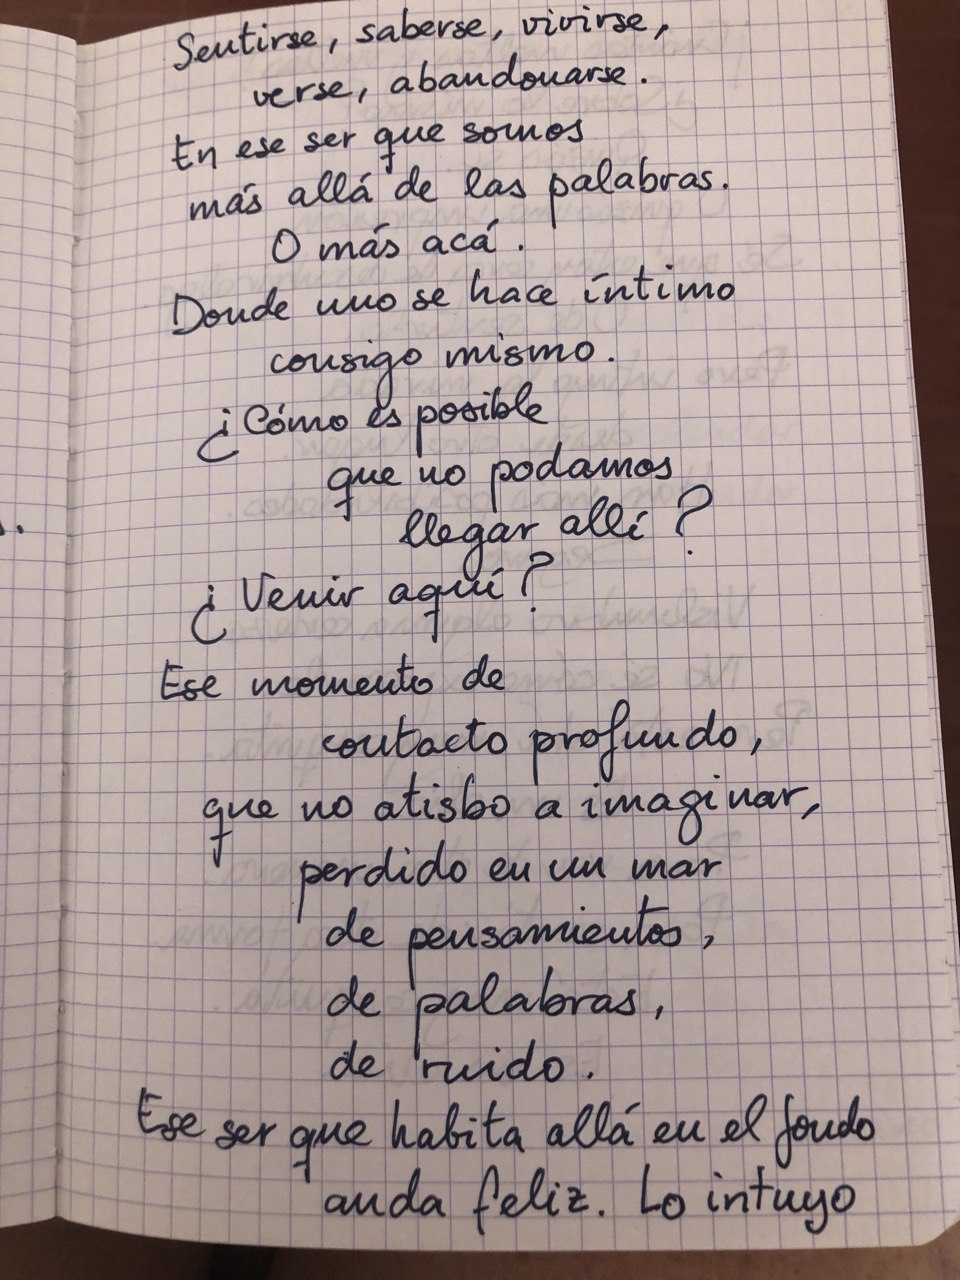 Sentirse, saberse, vivirse,
verse, abandonarse.
En ese ser que somos
más allá de las palabras.
O más acá.
Donde uno se hace íntimo
consigo mismo.
¿Cómo es posible
que no podamos
llegar allí?
¿Venir aquí?
Ese momento de
contacto profundo,
que no atisbo a imaginar,
perdido en un mar
de pensamientos,
de palabras,
de ruido.
Ese ser que habita allá en el fondo
anda feliz. Lo intuyo